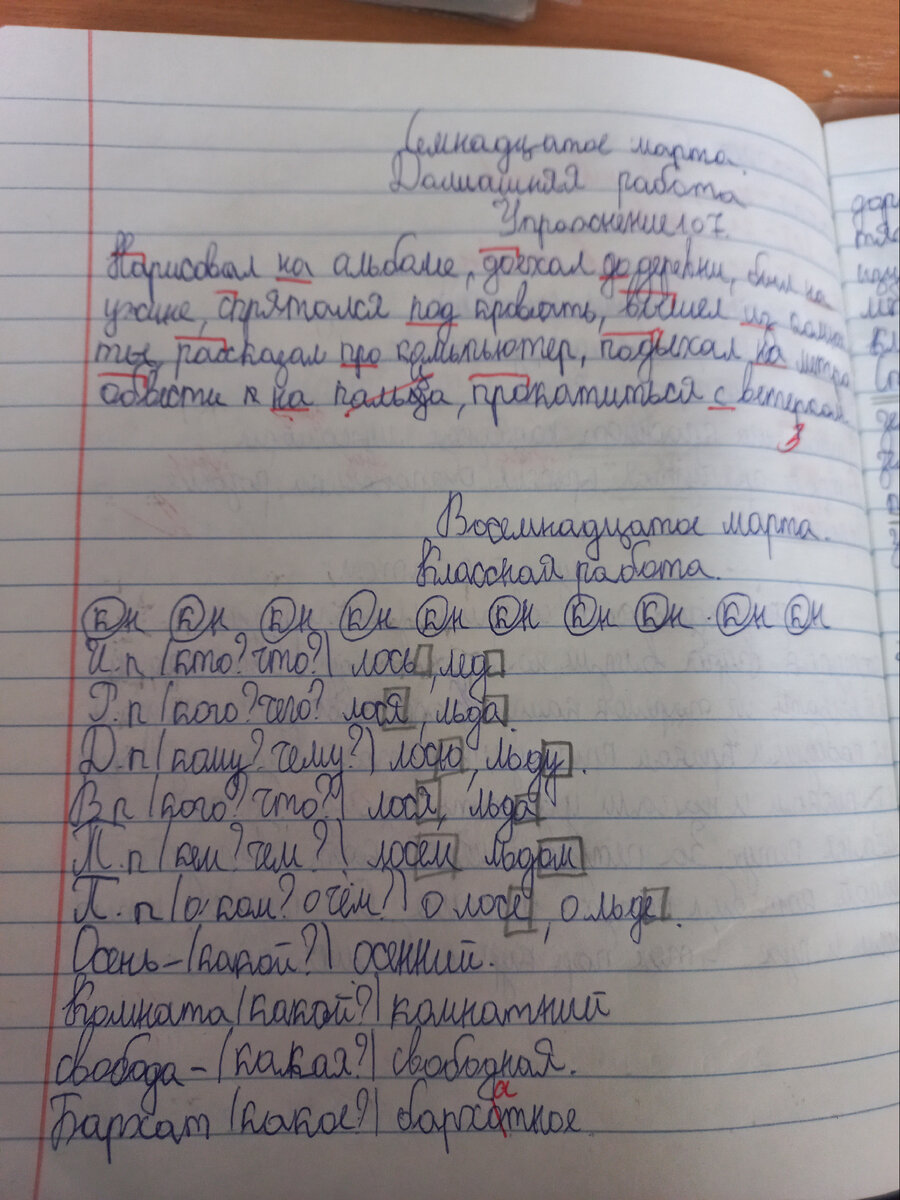 Семнадцатое марта.
Домашняя работа
Упражнение 107.
Нарисовал на альбоме, доехал до деревни, был на
ужине, спрятался под кровать, вышел из комна
ты, рассказал про компьютер, подъехал на метро
обвести на пальца, прокатиться с ветерком
3
Восемнадцатое марта.
Классная работа.
Кн Кн Кн Кн Кн Кн Кн Кн Кн Кн
И.п (кто? что?) лось, лед
Р.п (кого? чего? лося, льда
Д.п (кому? чему?) лосю, льду.
В п (кого? что?) лося, льда
Т.п (кем? чем?) лосем льдом
П.п (о ком? о чём?) о лосе, о льде.
Осень – (какой?) осенний.
Комната (какой?) комнатний
свобода – (какая?) свободная.
а
Бархат (какое?) бархатное